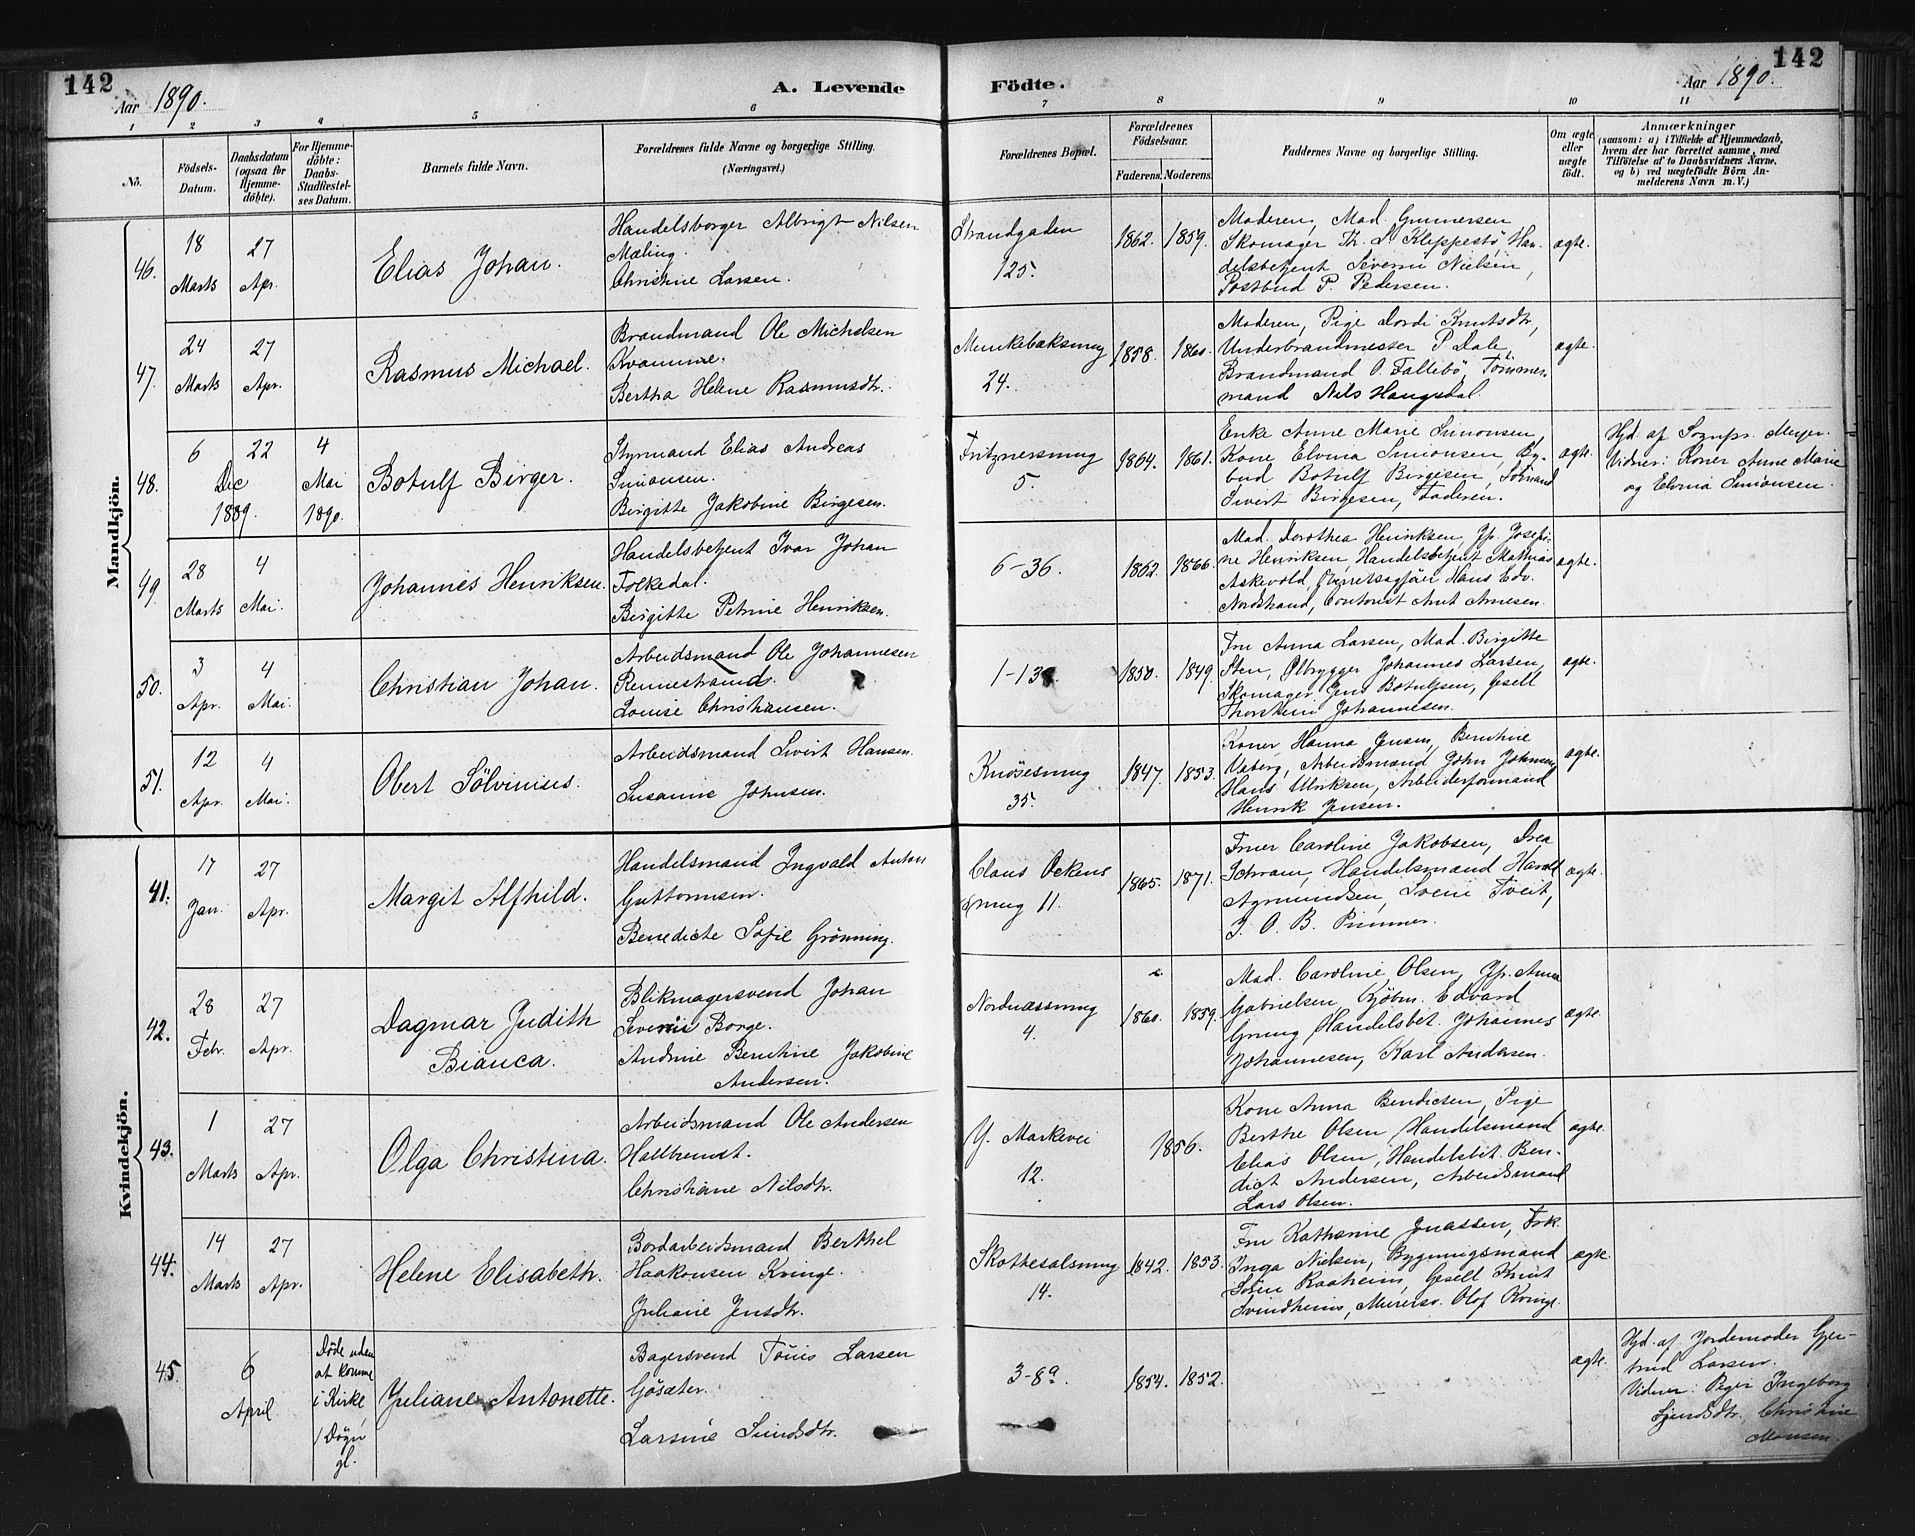 142
Aar 1890.
A. Levende
Födte.
Aar 1890.
142
1 2 3 4 5 6 7 8 9 10 11
No.
Födsels-
Datum.
Daabsdatum
(ogsaa for
Hjemme-
döbte).
For Hjemme-
döbte:
Daabs-
Stadfæstel-
ses Datum.
Barnets fulde Navn.
Forældrenes fulde Navne og borgerlige Stilling.
(Næringsvei.)
Forældrenes Bopæl.
Forældrenes
Födselsaar.
Faderens. Moderens.
Faddernes Navne og borgerlige Stilling.
Om ægte
eller
uægte
födt.
Anmærkninger
(saasom: a) i Tilfælde af Hjemmedaab,
hvem der har forrettet samme, med
Tilföielse af to Daabsvidners Navne,
og b) ved uægtefödte Börn An-
melderens Navn m.V.)
Mandkjön.
46.
18
Marts
27
Apr.
Elias Johan.
Handelsborger Albrigt Nilsen
Mæling.
Christine Larsen.
Strandgaden
125.
1862. 1859.
Moderen, Mad. Gunnersen
Skomager Th. S. Kleppestø, Han-
delsbetjent Severin Nielsen,
Postbud P. Pedersen.
ægte.
47.
24
Marts
27
Apr.
Rasmus Michael.
Brandmand Ole Michelsen
Kvamme.
Bertha Helene Rasmusdtr.
Munkebæksmug
24.
1858. 1860.
Moderen, Pige Dordi Knutsdtr,
Underbrandmester P. Dale,
Brandmand O. Fallebö, Tömmer-
mand Nils Haugsdal.
ægte.
48.
6
22
Dec
1889.
4
Mai
1890.
Botulf Birger.
Styrmand Elias Andreas
Simonsen.
Birgitte Jakobine Birgesen.
Fritznersmug
5.
1864. 1861.
Enke Anne Marie Simonsen,
Kone Elvina Simonsen, By-
bud Botulf Birgesen, Sömand
Sivert Birgesen, Faderen.
ægte.
Hjd. af Sognpr. Meyer.
Vidner: Koner Anne Marie
og Elvina Simonsen.
49.
28
Marts
4
Mai.
Johannes Henriksen.
Handelsbetjent Ivar Johan
Folkedal.
Birgitte Petrine Henriksen.
6-36.
1862. 1866.
Mad. Dorothea Henriksen, Jfr. Josefi-
ne Henriksen, Handelsbetjent Mathias
Askevold, Overretssagfører Hans Edv.
Nordstrand, Contorist Arnt Arnesen.
ægte.
50.
3
Apr.
4
Mai.
Christian Johan.
Arbeidsmand Ole Johannesen
Rennestraand.
Louise Christiansen.
1-13
1850. 1849.
Fru Anna Larsen, Mad. Birgitte
Sten, Ølbrygger Johannes Larsen,
Skomager Jens Botulfsen, Gesell
Thorstein Johannesen.
ægte.
51.
12
Apr.
4
Mai.
Obert Sölvinius.
Arbeidsmand Sivert Hansen.
Susanne Johnsen.
Knösesmug
35.
1847. 1853.
Koner Hanna Jensen, Berntine
Vaberg, Arbeidsmand John Johnsen,
Hans Ulriksen, Arbeiderformand
Henrik Jensen.
ægte.
Kvindekjön.
41.
17
Jan.
27
Apr.
Margit Alfhild.
Handelsmand Ingvald Anton
Guttormsen.
Benedicte Sofie Grönning.
Claus Ockens
smug 11.
1865. 1871.
Fruer Caroline Jakobsen, Drea
Schram, Handelsmand Harald
Agmundsen, Svein Tveit,
J. O. B. Pimmer.
ægte.
42.
28
Febr.
27
Apr.
Dagmar Judith
Bianca.
Blikmagersvend Johan
Severin Borge.
Andrine Berntine Jakobine
Andersen.
Nordnæssmug
4.
1860. 1859.
Mad. Caroline Olsen, Jfr. Anna
Gabrielsen, Kjöbm. Edvard
Grung, Handelsbet. Johannes
Johannesen, Karl Andersen.
ægte.
43.
1
Marts
27
Apr.
Olga Christina.
Arbeidsmand Ole Andersen
Christiane Nilsdtr.
Y. Markevei
12.
1856.
Kone Anna Bendictsen, Pige
Berthe Olsen, Handelsmand
Elias Olsen, Handelsbet. Ben-
dict Andersen, Arbeidsmand
Lars Olsen.
ægte.
44.
14
Marts
27
Apr.
Helene Elisabeth.
Bordarbeidsmand Berthel
Haakonsen Kvinge.
Juliane Jensdtr.
Skottesalsmug
14.
1842. 1853.
Fru Kathanne Jonassen, Frk.
Inga Nielsen, Bygningsmand
Sören Raaheim, Gesell Knut
Svindheim, Murersv. Olof Kvinge.
ægte.
45.
6
April
Døde uden
at komme
i Kirke
1 Døgn
gl.
Juliane Antonette.
Bagersvend Tönis Larsen
Gösæter.
Larsine Sundsdtr.
3-8a.
1854. 1852.
ægte.
Hjd. af Jordemoder Gjer-
trud Larsen.
Vidner: Piger Ingeborg
Sjurdsdtr. Christine
Monsen.